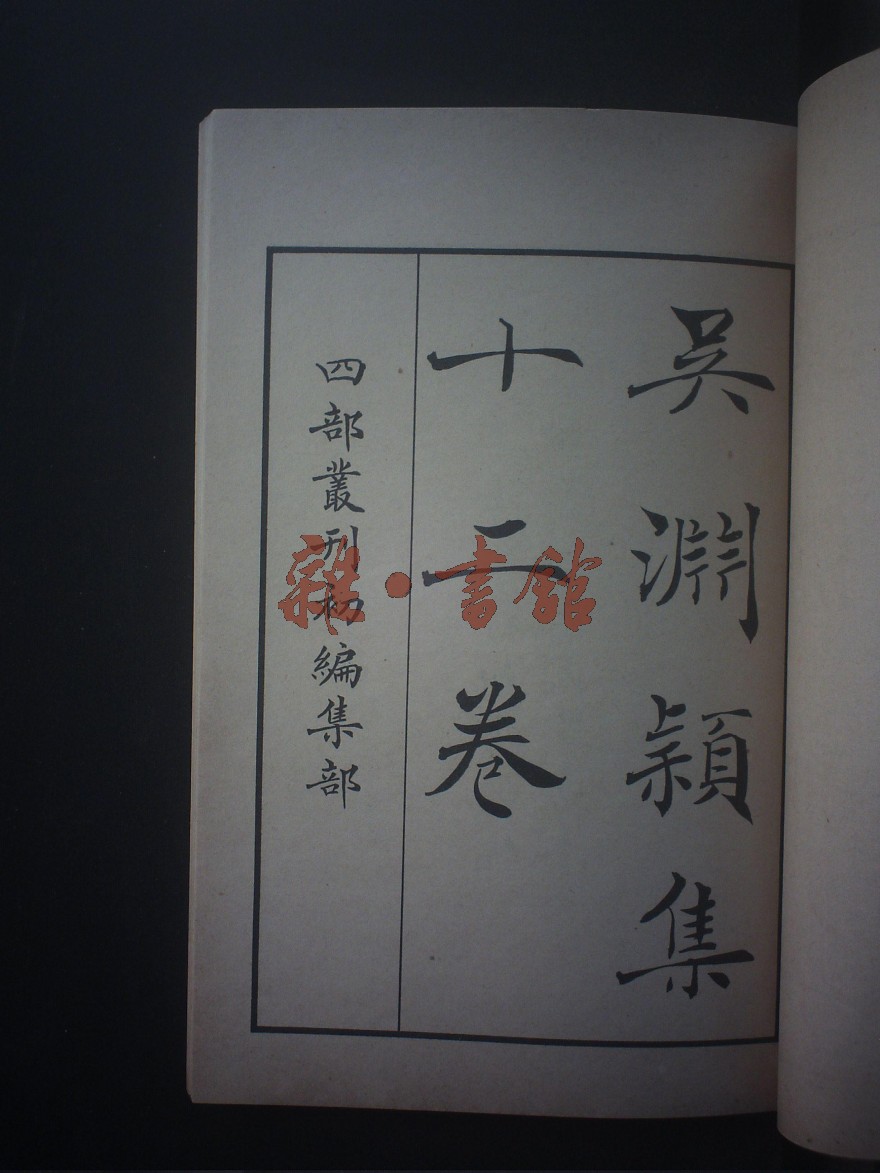 吴淵穎集
十二卷
四部叢刊初編集部
雜·書館